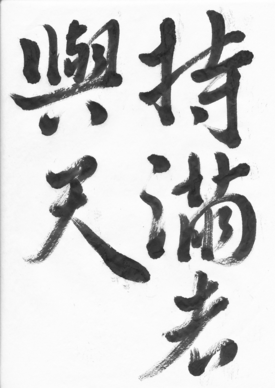 持滿者
與天